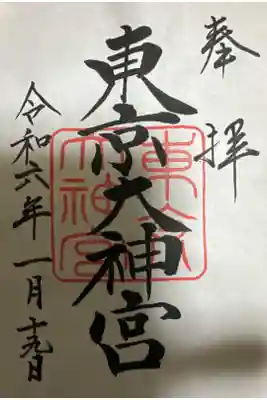 奉拝
東京大神宮
東京大神宮
令和六年一月十九日